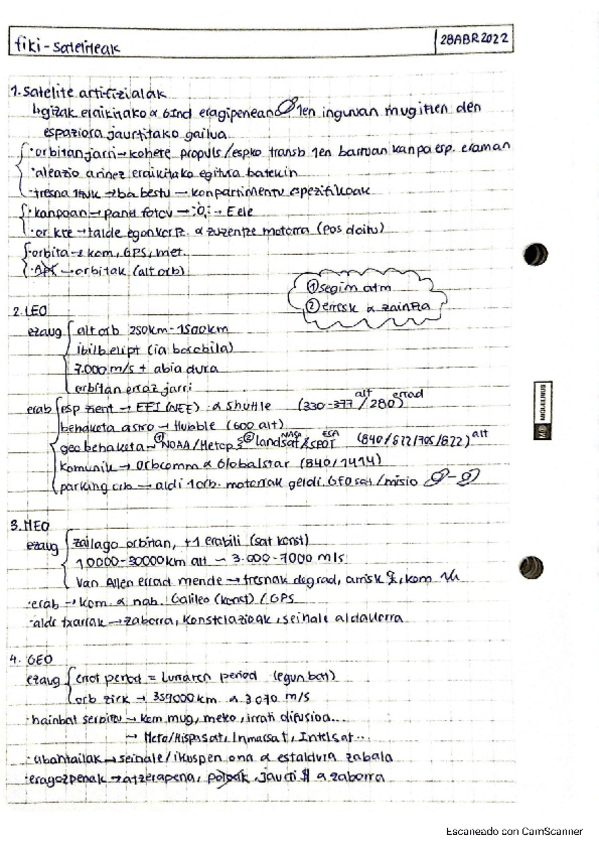 fiki - sateliteak
28ABR2022
1. Satelite artifizialak
gizak eraikitako & bind eragipenean len inguruan mugitzen den
espaziora jaurtitako gailua
· orbitan jarri → kohete propuls/espko transb len barruan kanpa esp. eraman
· aleazio arinez eraikitako egitura batekin
· tresna → ba bestu — konpartimentu espezifikoak
· kanpoan → panel fotov → Eele
· or kte → talde egonkortz. & zuzentze motorra (pos doitu)
· orbita → kom, GPS, met.
→ orbitak (alt orb)
① segim atm
② erresk & zaintza
2. LEO
ezaug
alt orb 250km - 1500km
ibilb elipt (ia borobila)
7.000 m/s + abiadura
orbitan erraz jarri
erab
esp zient → EEI (NEE) & Shuttle (330-377 alt / 280)
behaketa astro → Hubble (600 alt)
geo behaketa → ① NOAA/Metops ② landsat NASA & SPOT ESA (840/822/705/822) alt
komunik → Orbcomm & Globalstar (840/1414)
parking orb → aldi 1 orb. motorrak geldi. GEO sat/misio
3. MEO
ezaug
zailago orbitan, +1 erabili (sat konst)
10000-30000km alt ~ 3.000-7000 m/s
Van Allen errad mende → tresnak degrad, arrisk, kom
· erab → kom & nab. Galileo (konst) / GPS
· alde txarrak → zaborra, konstelazioak, seinale aldakorra
4. GEO
ezaug
errot period = Lurraren period (egun bat)
orb zirk → 359000km & 3070 m/s
· hainbat serbitzu → kom mug, meteo, irrati difusioa...
→ Mete/Hispasat, Inmarsat, Intelsat...
· abantailak → seinale/ikuspen ona & estaldura zabala
· eragozpenak → atzerapena, poloak, jaurti $ & zaborra
MOLESKINE
Escaneado con CamScanner